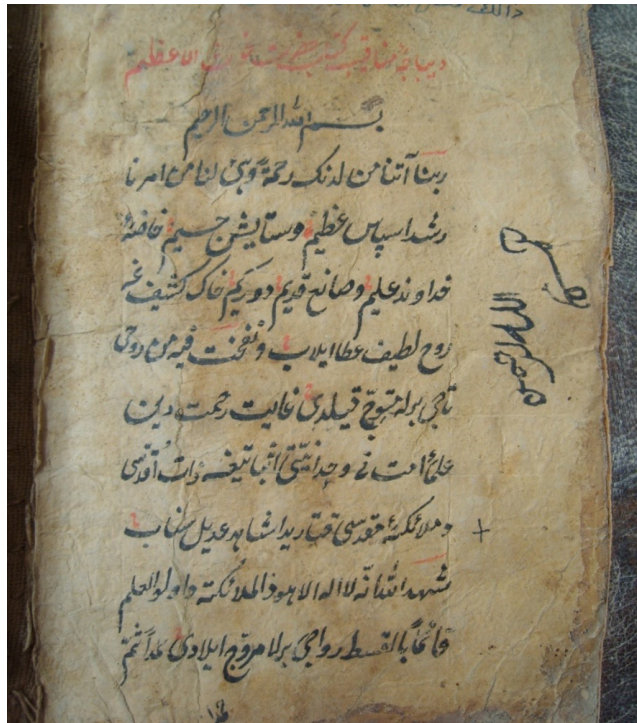 دیباجهٔ مناقب الاعظم
بسم الله الرحمن الرحیم
ربنا آتنا من لدنک رحمة وهیئ لنا من امرنا
رشدا سپاس عظیم و ستایش جسیم
خداوند علیم و صانع قدیم خاک کشیف غه
روح لطیف عطا ایلاب و نفخت فیه من روحی
تاجی برله متوّج قیلدی غایت رحمت دین
علمأ امت نی وحدانیّتی اثباتیغه ذات اقدسی
و ملائکهٔ مقدسی قتاریدا شاهد عدیل سناب
شهد الله انّه لا اله الا هو والملائکة و اولو العلم
قائماً بالقسط رواجی برلا مروّج ایلادی
بسم
الله الرحمن